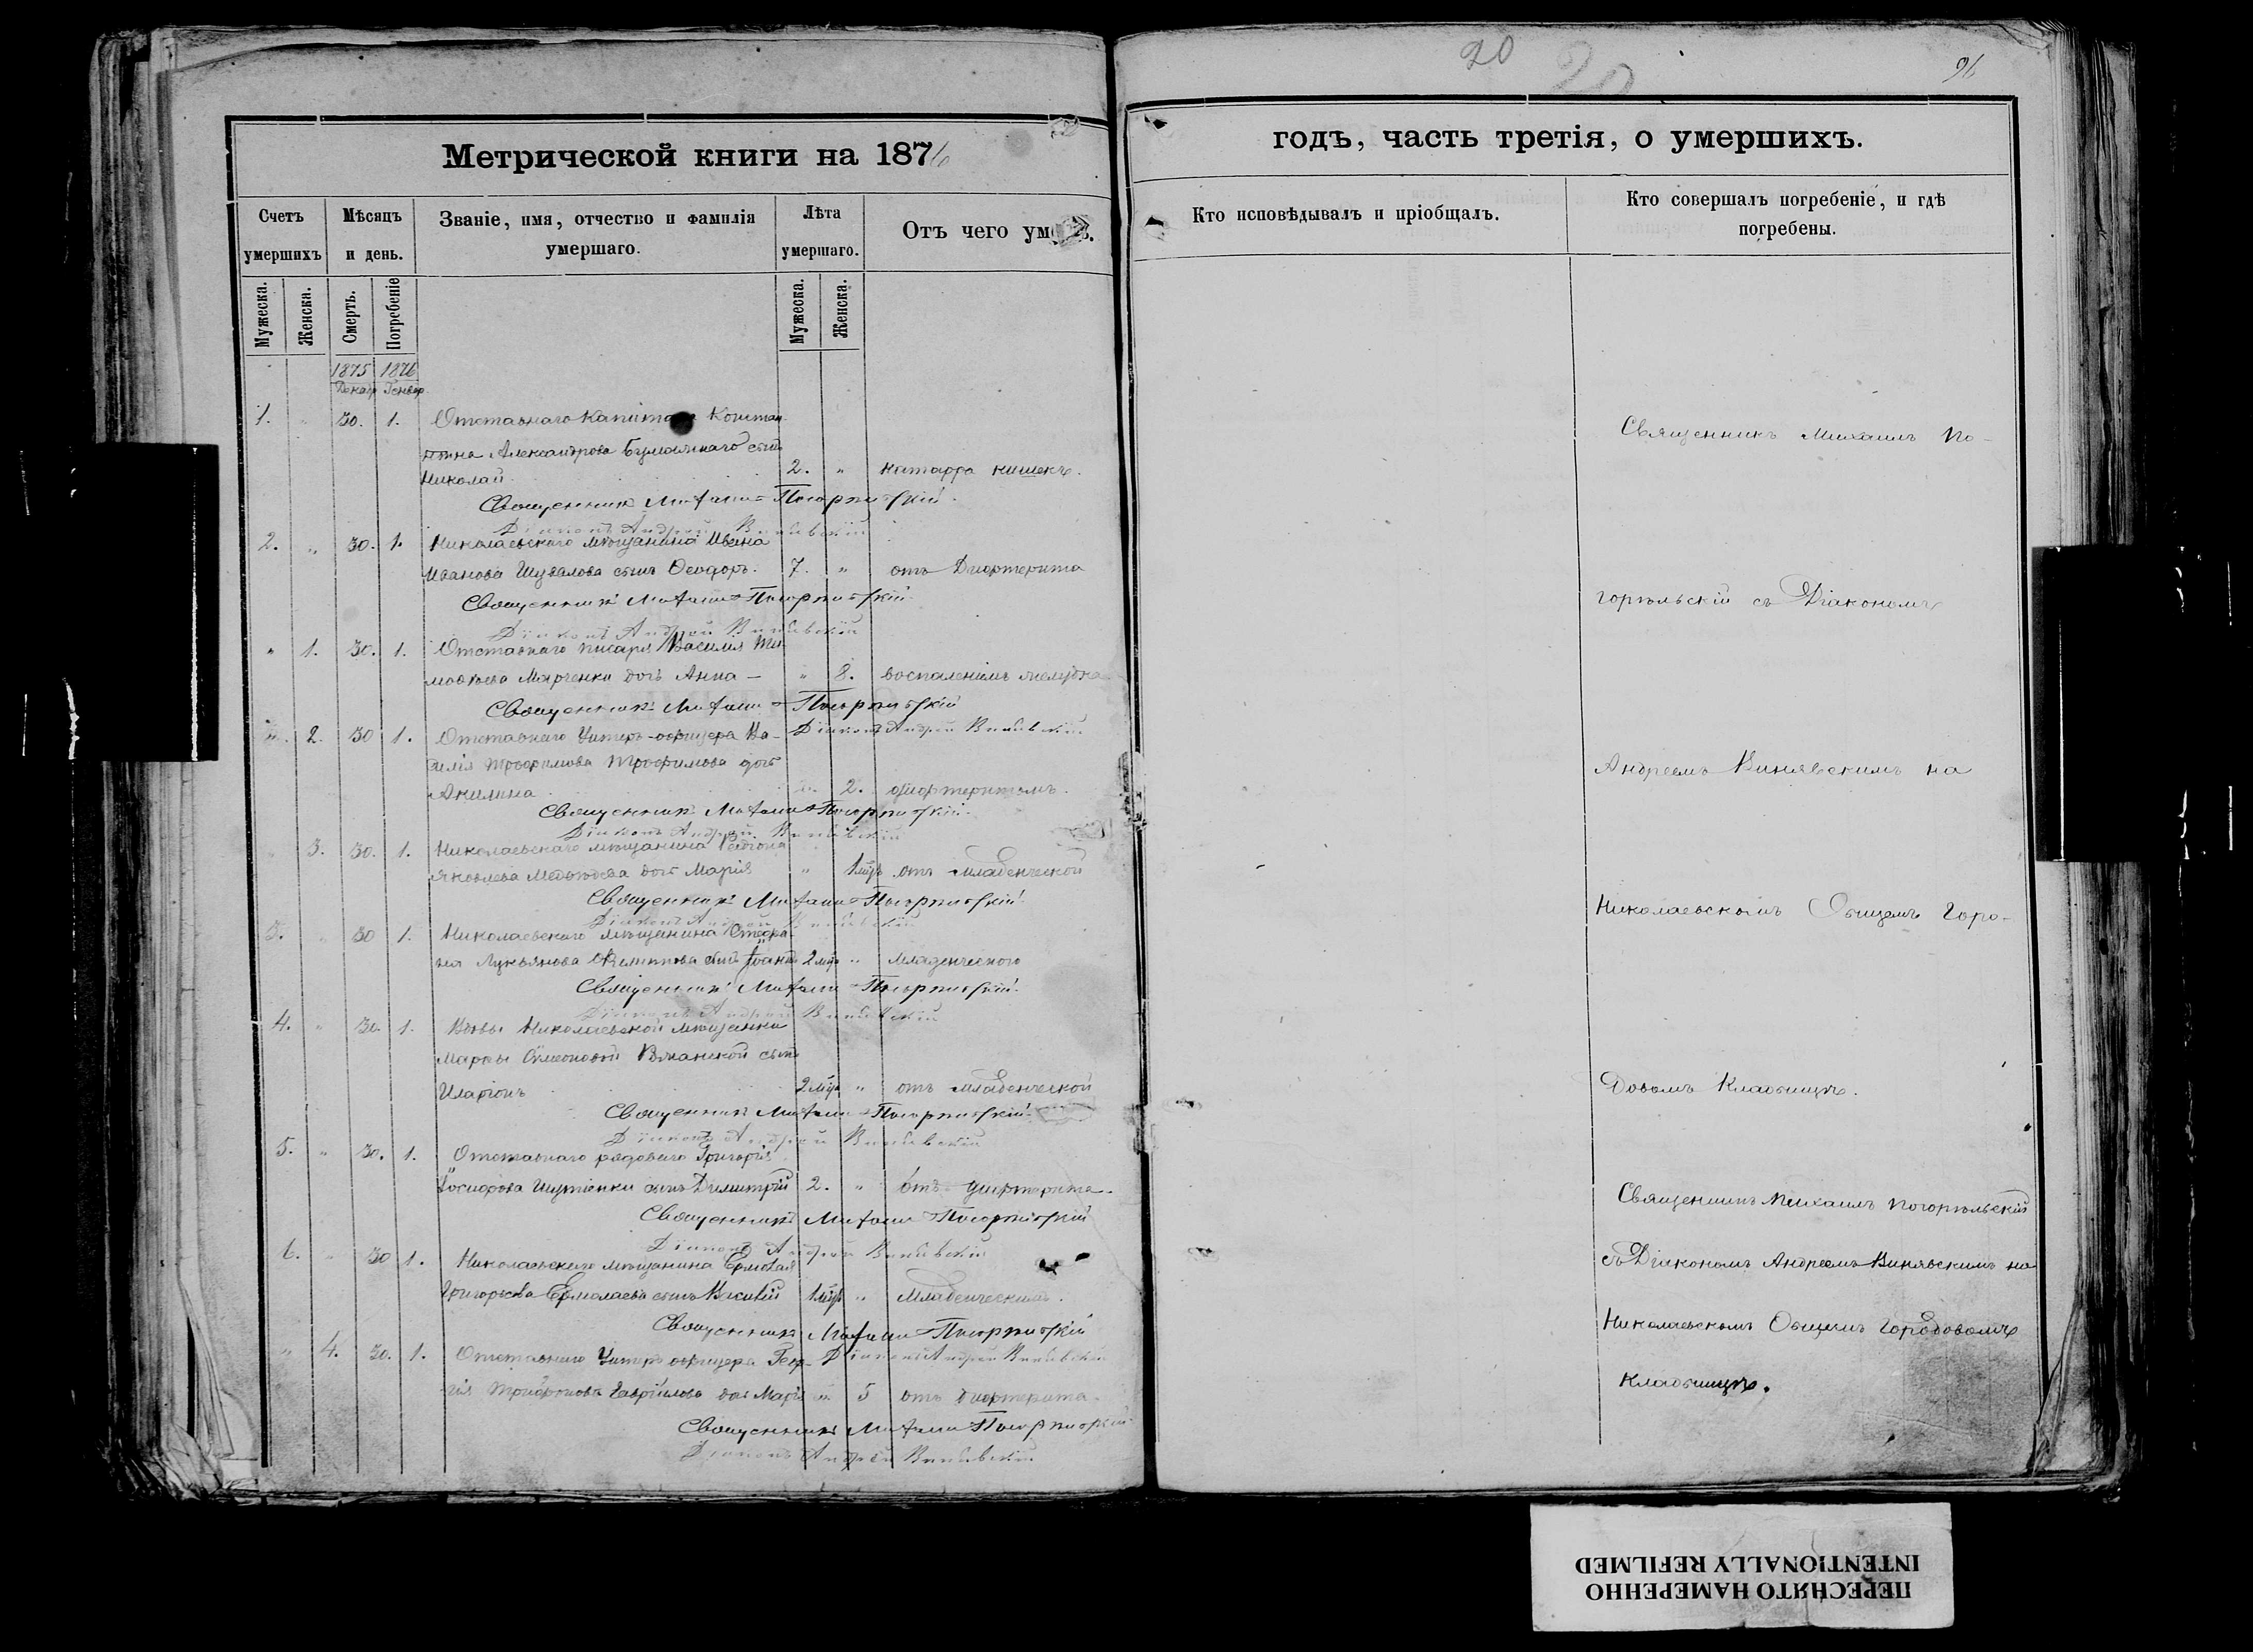 20 20
96
Метрической книги на 1876
годъ, часть третія, о умершихъ.
Счетъ умершихъ
Мѣсяцъ и день.
Званіе, имя, отчество и фамилія умершаго.
Лѣта умершаго.
Отъ чего умеръ.
Кто исповѣдывалъ и пріобщалъ.
Кто совершалъ погребеніе, и гдѣ погребены.
Мужеска. Женска. Смерть. Погребеніе Мужеска. Женска.
1875 1876
Декаб Генвар
1. " 30. 1. Отставнаго Капитана Констан-
тина Александрова сынъ
Николай 2. " катарра кишекъ.
Священникъ Михаилъ Погорѣльскій
Діаконъ Андрей Винявскій
2. " 30. 1. Николаевскаго мѣщанина Ивана
Иванова Шувалова сынъ Ѳеодоръ. 7. " отъ Дифтерита
Священникъ Михаилъ Погорѣльскій
Діаконъ Андрей Винявскій
" 1. 30. 1. Отставнаго писаря Василія Ти-
моѳеева Марченки дочь Анна — " 8. воспаленіемъ желудка
Священникъ Михаилъ Погорѣльскій
" 2. 30 1. Отставнаго Унтеръ-офицера
Діаконъ Андрей Винявскій
Трофимова Трофимова дочь
Акилина " 2. дифтеритомъ.
Священникъ Михаилъ Погорѣльскій
Діаконъ Андрей Винявскій
" 3. 30. 1. Николаевскаго мѣщанина Родіона
Яковлева Медвѣдева дочь Марія " 1 мѣс. отъ младенческой
Священникъ Михаилъ Погорѣльскій
Діаконъ Андрей Винявскій
3. " 30 1. Николаевскаго мѣщанина Стефа-
на Лукьянова сынъ Іоаннъ 2 мѣс " младенческого
Священникъ Михаилъ Погорѣльскій
Діаконъ Андрей Винявскій
4. " 30. 1. Вдовы Николаевской мѣщанки
Марѳы Симеоновой сынъ
Иларіонъ 2 мѣс " отъ младенческой
Священникъ Михаилъ Погорѣльскій
Діаконъ Андрей Винявскій
5. " 30. 1. Отставнаго рядоваго Григорія
Іосифова сынъ Димитрій 2. " отъ дифтерита.
Священникъ Михаилъ Погорѣльскій
Діаконъ Андрей Винявскій
6. " 30 1. Николаевскаго мѣщанина Ермолая
Григорьева Ермолаева сынъ Василій 1 мѣс " Младенческимъ.
Священникъ Михаилъ Погорѣльскій
" 4. 30. 1. Отставнаго Унтеръ офицера Геор-
Діаконъ Андрей Винявскій
гія Гавріилова дочь Марія " 5 отъ дифтерита
Священникъ Михаилъ Погорѣльскій
Діаконъ Андрей Винявскій
Священникъ Михаилъ По-
горѣльскій съ Діакономъ
Андреемъ Винявскимъ на
Николаевскомъ Общемъ Горо-
довомъ Кладбищѣ.
Священникъ Михаилъ Погорѣльскій
съ Діакономъ Андреемъ Винявскимъ на
Николаевскомъ Общемъ Городовомъ
Кладбищѣ.
ПЕРЕСНЯТО НАМЕРЕННО
INTENTIONALLY REFILMED